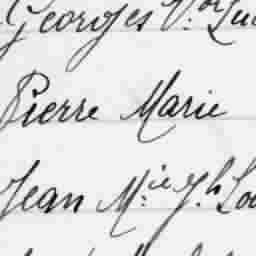 Georges V.or
Pierre Marie
Jean M.ie J.h